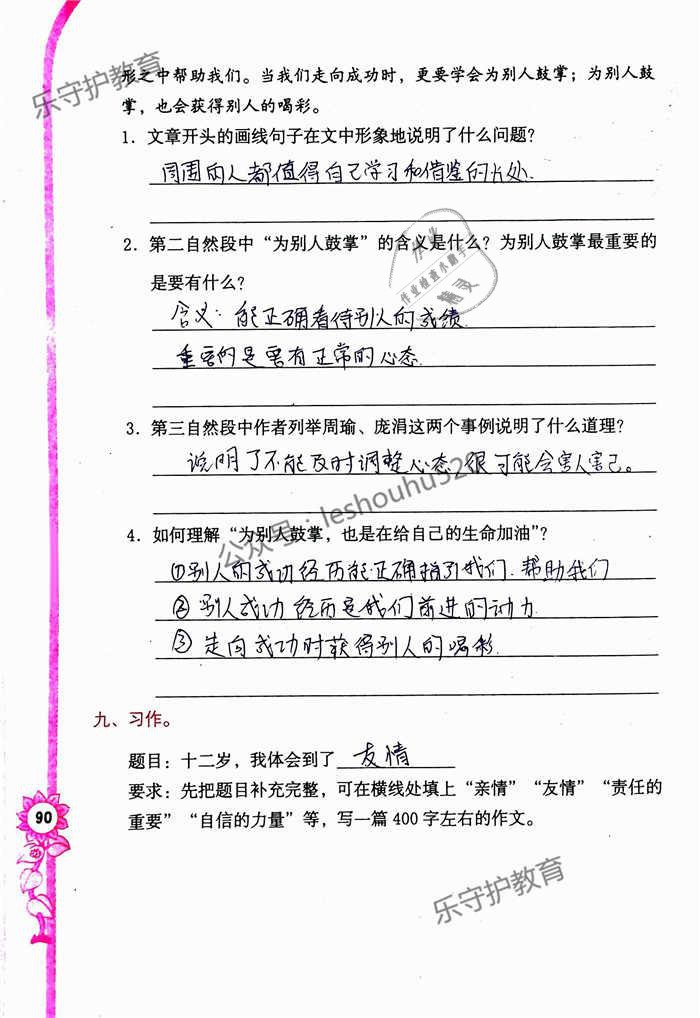 形之中帮助我们。当我们走向成功时，更要学会为别人鼓掌；为别人鼓
掌，也会获得别人的喝彩。
1．文章开头的画线句子在文中形象地说明了什么问题？
周围的人都值得自己学习和借鉴的长处.
2．第二自然段中“为别人鼓掌”的含义是什么？为别人鼓掌最重要的
是要有什么？
含义：能正确看待别人的成绩.
重要的是要有正常的心态.
3．第三自然段中作者列举周瑜、庞涓这两个事例说明了什么道理？
说明了不能及时调整心态很可能会害人害己。
4．如何理解“为别人鼓掌，也是在给自己的生命加油”？
①别人的成功经历能正确指引我们.帮助我们
②别人成功经历是我们前进的动力
③走向成功时获得别人的喝彩.
九、习作。
题目：十二岁，我体会到了 友情
要求：先把题目补充完整，可在横线处填上“亲情”“友情”“责任的
重要”“自信的力量”等，写一篇 400 字左右的作文。
90
乐守护教育
作业
作业检查小助手
精灵
公众号：leshouhu520
乐守护教育